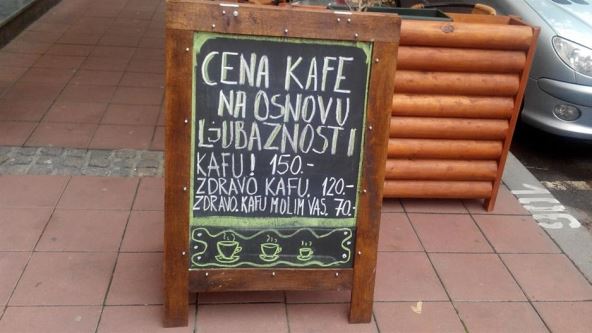 CENA KAFE
NA OSNOVU
LJUBAZNOSTI
KAFU! 150.-
ZDRAVO KAFU. 120.-
ZDRAVO. KAFU MOLIM VAS. 70.-
106